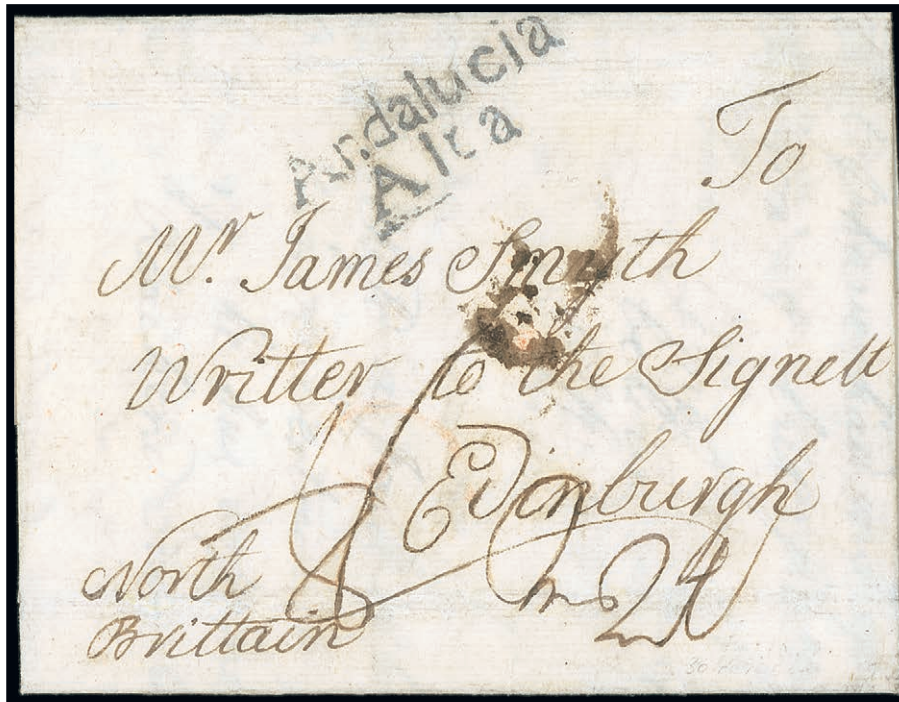 Andalucia
Alta
To
Mr. James Smyth
Writter to the Signett
Edinburgh
North
Brittain